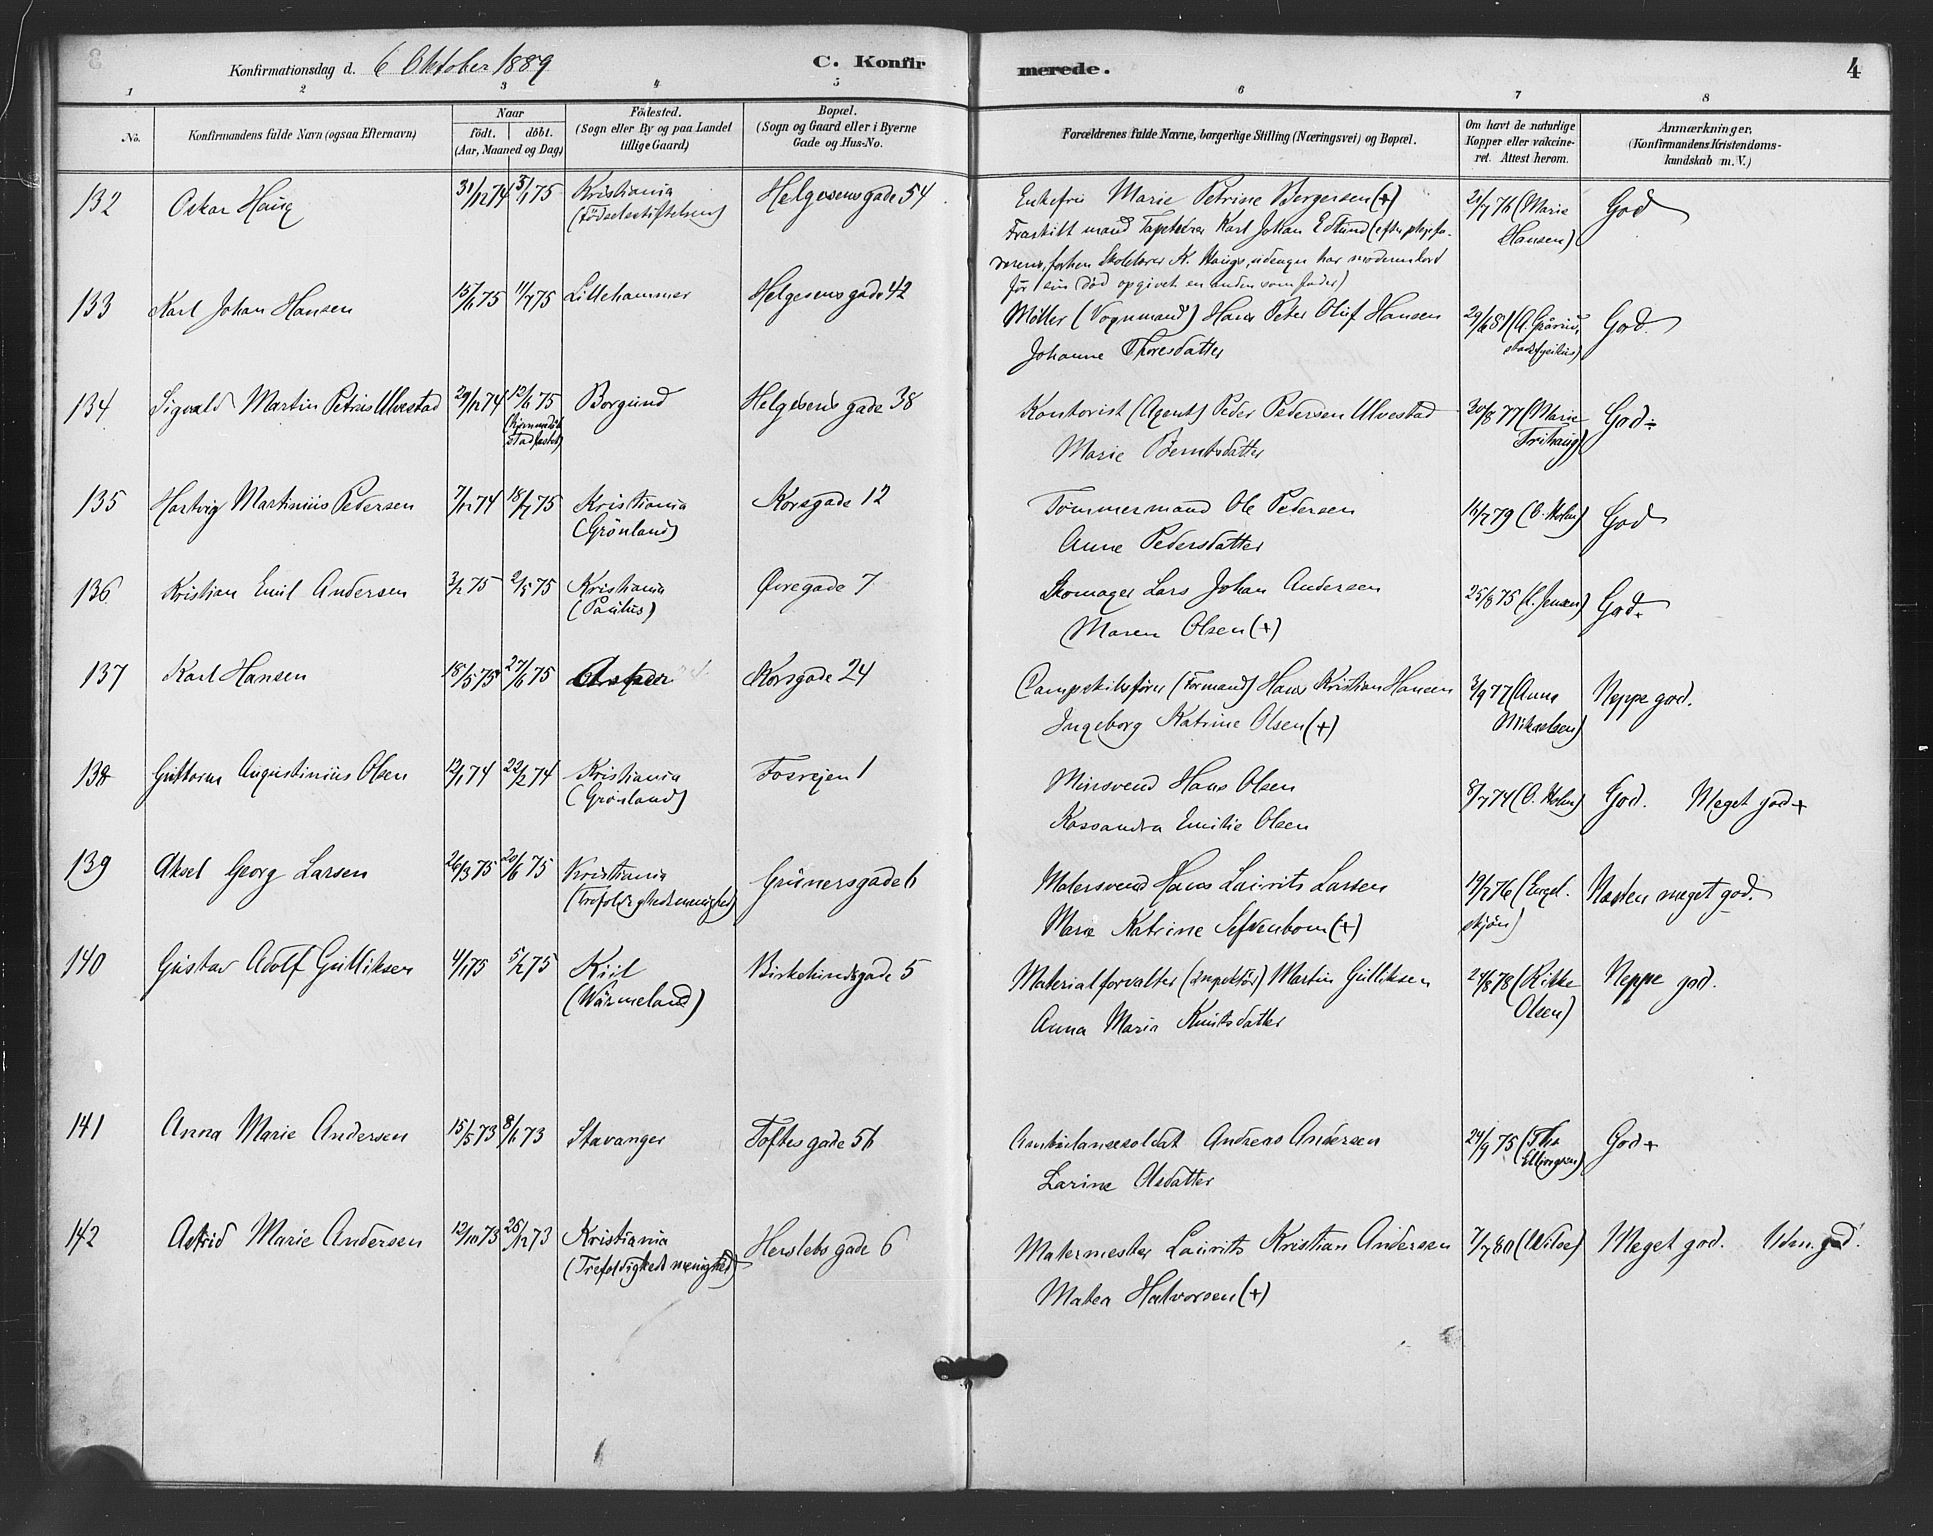 Konfirmationsdag d. 6 Oktober 1889 C. Konfir merede. 4
1 2 3 4 5 6 7 8
No. Konfirmandens fulde Navn (ogsaa Efternavn)
Naar
födt. döbt.
(Aar, Maaned og Dag)
Födested.
(Sogn eller By og paa Landet
tillige Gaard)
Bopæl.
(Sogn og Gaard eller i Byerne
Gade og Hus-No.
Forældrenes fulde Navne, borgerlige Stilling (Næringsvei) og Bopæl.
Om havt de naturlige
Kopper eller vakcine-
ret. Attest herom.
Anmærkninger.
(Konfirmandens Kristendoms-
kundskab m. V.)
132 Oskar Haug 31/12 74 3/1 75 Kristiania Helgesensgade 54 Enkefru Marie Petrine Bergersen (+) 21/7 76 (Marie God
(Födselsstiftelsen) Fraskilt mand Karl Johan Edlund (efter plejefa- Hansen)
derens, forhen Skolelærer K. Haugs, udsagn har moderen kort
för sin död opgivet en anden som fader)
133 Karl Johan Hansen 15/6 75 11/7 75 Lillehammer Helgesensgade 42 Möller (Vognmand) Hans Peter Oluf Hansen 29/6 81 God.
Johanne Thoresdatter stadsfysikus)
134 Sigvald Martin Petrus Ulvestad 29/12 74 12/1 75 Borgund Helgesens gade 38 Kontorist (Agent) Peder Pedersen Ulvestad 30/8 77 (Marie God÷
(hjemmedöbt Marie Berntsdatter
stadfæstet)
135 Hartvig Martinius Pedersen 7/12 74 18/7 75 Kristiania Korsgade 12 Tömmermand Ole Pedersen 16/7 79 (O. Holm) God
(Grönland) Anne Pedersdatter
136 Kristian Emil Andersen 3/2 75 2/5 75 Kristiania Övregade 7 Skomager Lars Johan Andersen 25/8 75 (L. Jensen) God.
(Paulus) Maren Olsen (+)
137 Karl Hansen 18/5 75 27/6 75 Korsgade 24 (Formand) Hans Kristian Hansen 3/9 77 (Anna Neppe god.
Ingeborg Katrine Olsen (+) Mikaelsen)
138 Guttorm Augustinius Olsen 12/1 74 22/2 74 Kristiania Fosvejen 1 Minsvend Hans Olsen 8/7 74 (O. Holm) God. Meget god+
(Grönland) Kassandra Emilie Olsen
139 Aksel Georg Larsen 26/3 75 20/6 75 Kristiania Grünersgade 6 Malersvend Hans Laurits Larsen 19/7 76 (Engel- Næsten meget god.
(Trefoldighedsmenighed) Marie Katrine (+) skjön)
140 Gustav Adolf Gulliksen 4/1 75 5/2 75 Kiil Birkelundsgade 5 Materialforvalter (inspektör) Martin Gulliksen 24/8 78 (Rikke Neppe god.
(Wärmeland) Anna Maria Knutsdatter Olsen)
141 Anna Marie Andersen 15/5 73 8/6 73 Stavanger Toftes gade 56 Ambulansesoldat Andreas Andersen 24/9 75 (Ths God+
Larine Olsdatter Ellingsen)
142 Astrid Marie Andersen 12/10 73 26/12 73 Kristiania Herslebs gade 6 Malermester Laurits Kristian Andersen 7/7 80 (Wilse) Meget god. Udm. god.
(Trefoldigheds menighed) Matea Halvorsen (+)